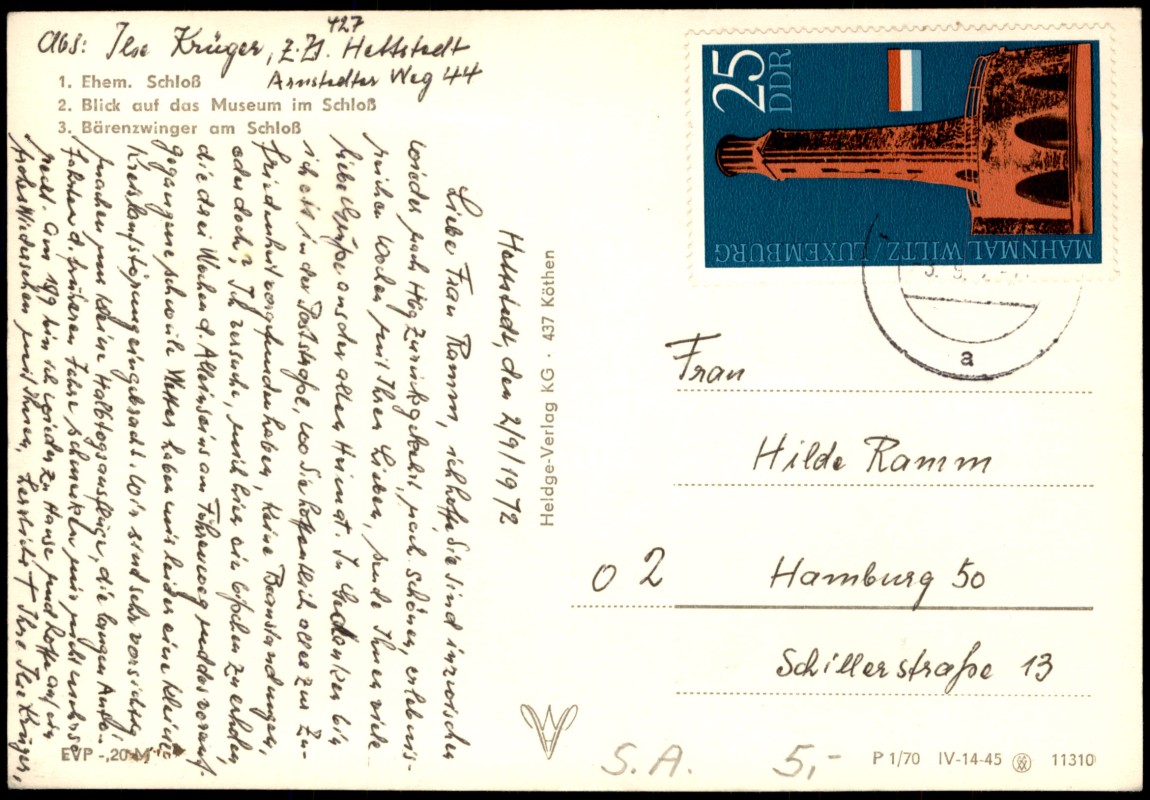 Abs: Ilse Krüger, z.Zt. 427 Hettstedt
Arnstedter Weg 44
1. Ehem. Schloß
2. Blick auf das Museum im Schloß
3. Bärenzwinger am Schloß
Hettstedt, den 2/9/1972
Liebe Frau Ramm, ich hoffe Sie sind inzwischen
wieder nach Hbg zurückgekehrt nach schönen, erlebnis-
reichen Wochen mit Ihren Lieben, sende Ihnen viele
liebe Grüße aus der alten Heimat. In Gedanken bin
ich oft in der Poststraße, wo Sie hoffentlich alles zur Zu-
friedenheit vorgefunden haben, keine Beanstandungen,
oder doch? Ich versuche, mich hier ein bißchen zu erholen,
die drei Wochen d. Alleinseins am Föhrenweg und das vorauf-
gegangene schwüle Wetter haben mir leider eine kleine
Kreislaufstörung eingebracht. Wir sind sehr vorsichtig,
machen nur kleine Halbtagsausflüge, die langen Auto-
fahrten d. früheren Jahre schmecken mir nicht mehr so
recht. Am 18/9 bin ich wieder zu Hause und hoffe auf ein
frohes Wiedersehen mit Ihnen, herzlichst Ihre Ilse Krüger,
EVP -,20 M
Heldge-Verlag KG · 437 Köthen
25
DDR
MAHNMAL WILTZ/LUXEMBURG
a
Frau
Hilde Ramm
02 Hamburg 50
Schillerstraße 13
S.A. 5,-
P 1/70 IV-14-45 11310